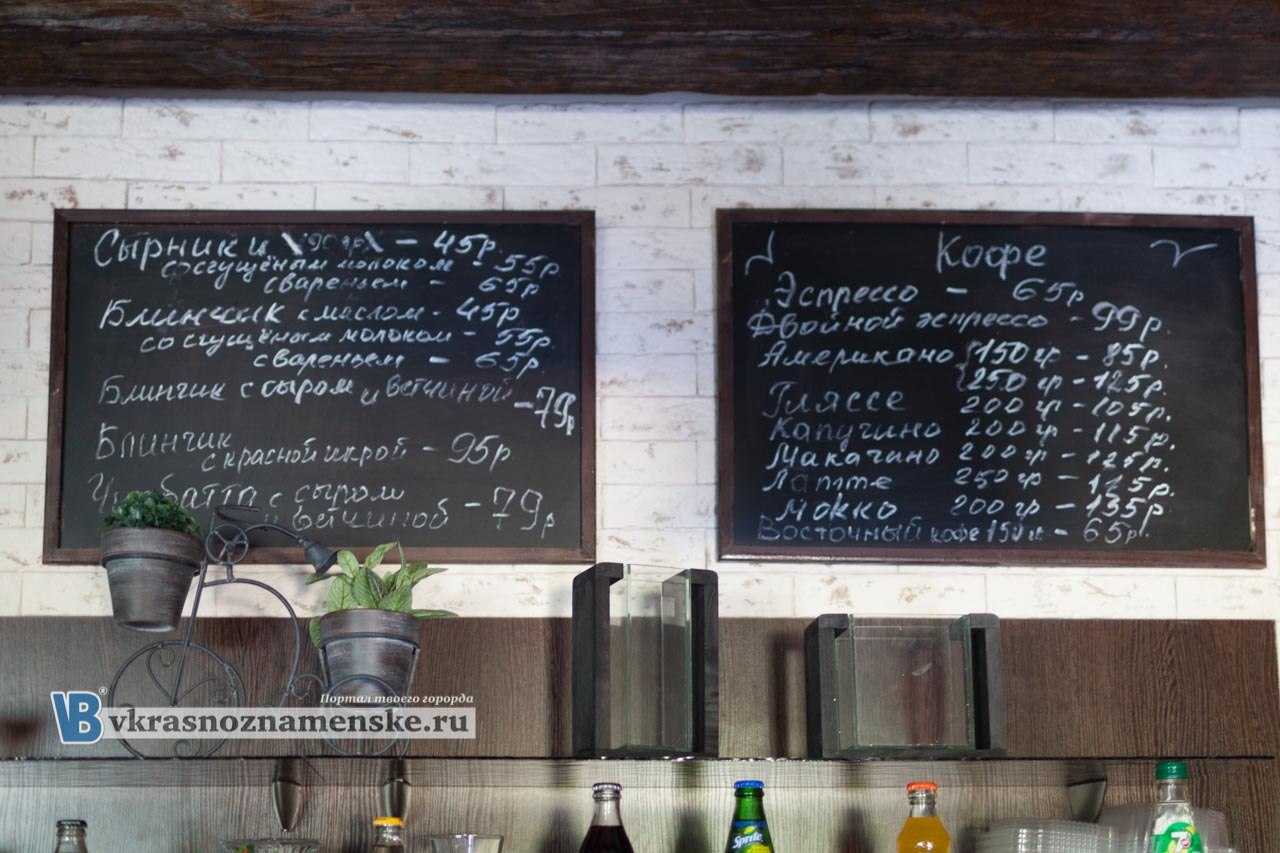 Сырники \90гр\ - 45р.
со сгущёным молоком 55р.
с вареньем - 65р.
Блинчик с маслом - 45р.
со сгущёным молоком - 55р.
с вареньем - 65р.
Блинчик с сыром и ветчиной - 79р
Блинчик
с красной икрой - 95р
с сыром
и ветчиной - 79р
Кофе
Эспрессо - 65р
Двойной эспрессо - 99р.
Американо 150 гр - 85р.
250 гр - 125р.
Гляссе 200 гр - 105р.
Капучино 200 гр - 115р.
Макачино 200 гр - 125р.
Латте 250 гр - 125р.
Мокко 200 гр - 135р.
Восточный кофе 150 гр - 65р.
Портал твоего горорда
VB® vkrasnoznamenske.ru
Sprite
7